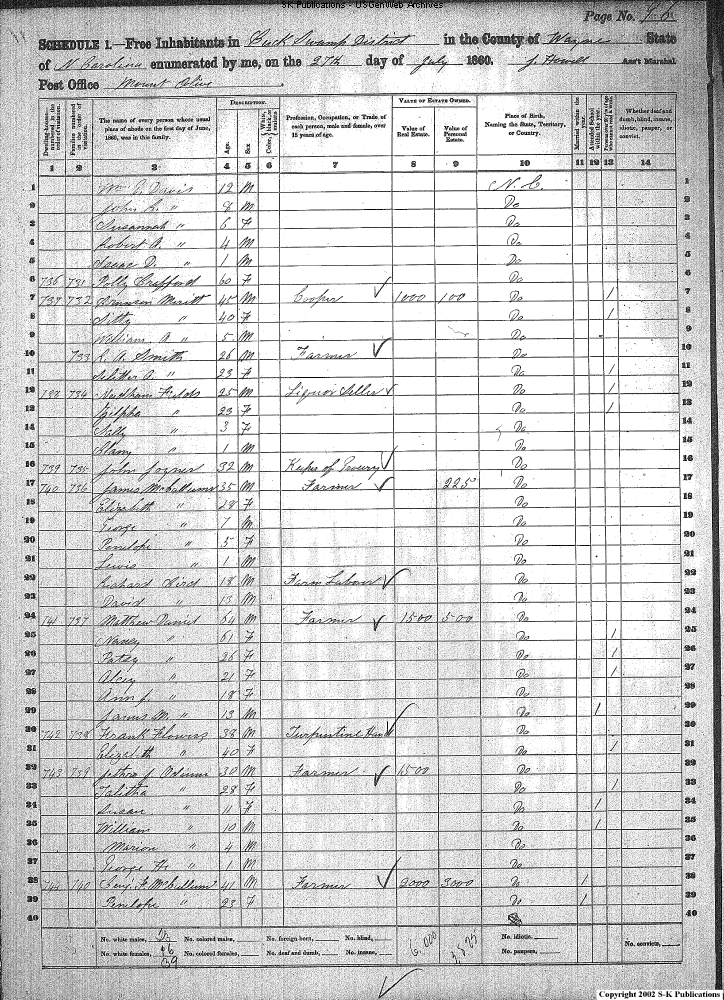 SK Publications - USGenWeb Archives
Page No. 96
SCHEDULE 1.—Free Inhabitants in Buck Swamp District in the County of Wayne State
of N Carolina enumerated by me, on the 27th day of July 1860. J. Howell Ass't Marshal
Post Office Mount Olive
Dwelling-houses—numbered in the order of visitation.
Families numbered in the order of visitation.
The name of every person whose usual place of abode on the first day of June, 1860, was in this family.
DESCRIPTION.
Age.
Sex
Color, White, black, or mulatto
Profession, Occupation, or Trade of each person, male and female, over 15 years of age.
VALUE OF ESTATE OWNED.
Value of Real Estate.
Value of Personal Estate.
Place of Birth, Naming the State, Territory, or Country.
Married within the year.
Attended School within the year.
Whether deaf and dumb, blind, insane, idiotic, pauper, or convict.
1 2 3 4 5 6 7 8 9 10 11 12 13 14
1 Davis 12 M N. C. 1
2 John " 8 M Do 2
3 Susannah " 6 F Do 3
4 Robert A. " 4 M Do 4
5 Isaac D. " 1 M Do 5
6 736 731 Polly 60 F Do 6
7 737 732 Meritt 45 M Cooper 1000 100 Do 1 7
8 Sitty " 40 F Do 1 8
9 William A " 5 M Do 9
10 733 Smith 26 M Farmer Do 10
11 A. " 23 F Do 1 11
12 738 734 Needham Fields 25 M Liquor Seller Do 1 12
13 Zilpha " 23 F Do 1 13
14 " 3 F Do 14
15 " 1 M Do 15
16 739 735 John Joyner 32 M Keeper of Do 16
17 740 736 James McCullum 35 M Farmer 225 Do 17
18 Elizabeth " 28 F Do 18
19 George " 7 M Do 19
20 Penelope " 5 F Do 20
21 Lewis " 1 M Do 21
22 Richard 18 M Farm Laborer Do 22
23 David " 13 M Do 23
24 741 737 Matthew Daniel 64 M Farmer 1500 500 Do 24
25 Nancy " 61 F Do 1 25
26 Patsy " 26 F Do 1 26
27 " 21 F Do 1 27
28 Ann J. " 18 F Do 28
29 James M. " 13 M Do 1 29
30 742 738 Frank Flowers 38 M Turpentine Hand Do 30
31 Elizabeth " 40 F Do 1 31
32 743 739 Jethro J 30 M Farmer 1500 Do 32
33 Talitha " 28 F Do 1 33
34 Susan " 11 F Do 1 34
35 William " 10 M Do 1 35
36 Marion " 4 M Do 36
37 George H. " 1 M Do 37
38 744 740 Benj. F McCullum 41 M Farmer 2000 3000 Do 1 38
39 Penelope " 23 F Do 1 39
40 40
No. white males, No. colored males, No. foreign born, No. blind, 6,000 No. idiotic, No. convicts,
No. white females, No. colored females, No. deaf and dumb, No. insane, No. paupers,
Copyright 2002 S-K Publications